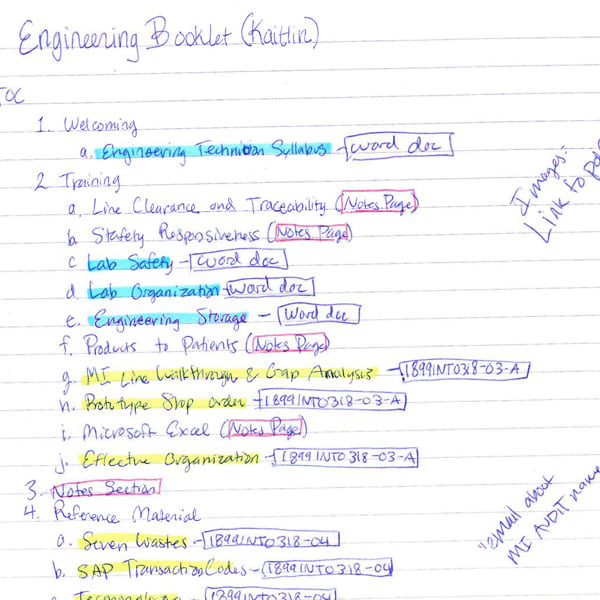 Engineering Booklet (Kaitlin)
TOC
1. Welcoming
a. Engineering Technician Syllabus - Word doc
2 Training
a. Line Clearance and Traceability (Notes Page)
b. Stafety Responsiveness (Notes Page)
c Lab Safety - Word doc
d. Lab Organization - Word doc
e. Engineering Storage - Word doc
f. Products to Patients (Notes Page)
g. MI Line Walkthrough & Gap Analysis - 1899INT0318-03-A
h. Prototype Shop order - 1899INT0318-03-A
i. Microsoft Excel (Notes Page)
j. Effective Organization - 1899INT0318-03-A
3. Notes Section
4. Reference Material
a. Seven Wastes - 1899INT0318-04
b. SAP Transaction Codes - 1899INT0318-04
1899INT0318-04
Images:
Link to
"email about
MI AUDIT name